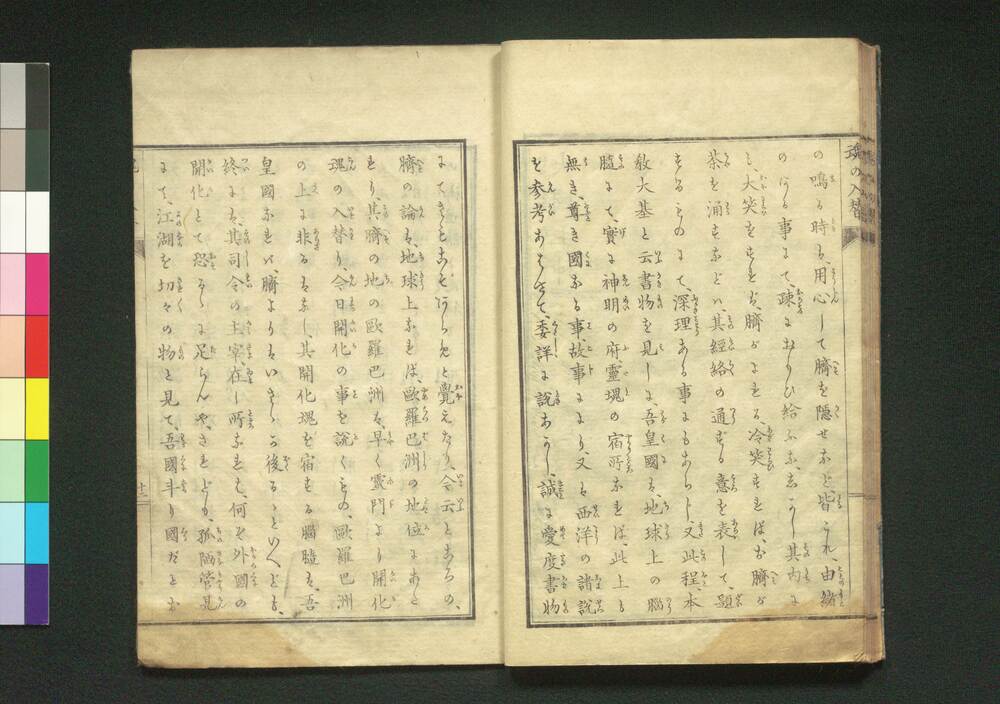 の鳴る時は、用心して臍を隠せなど、皆これ、由緒
の有る事にて、疎におもひ給ふな、しかし其内に
も大笑をすれば、臍がよれる、冷笑すれば、お臍が
茶を涌すなどハ、其經絡の通ずる意を表して、題
するものにて、深理ある事にもあらじ、又此程、本
教大基と云書物を見しに、吾皇國は、地球上の腦
髓にて、實に神明の府、靈塊の宿所なれば、此上も
無き、尊き國なる事、故事により、又は西洋の諸説
を参考あはせて、委詳に説あかし、誠に愛度書物
にて
覺えたり、今云ところの、
臍の論は、地球上なれば、歐羅巴洲の地位にあた
れり、其臍の地の歐羅巴洲は、早く靈門より開化
魂の入替り、今日開化の事を説くもの、歐羅巴洲
の上に非るはなし、其開化魂を宿する腦髓は、吾
皇國なれバ、臍よりはいさゝか後るゝといへども、
終には、其司令の主宰、在し所なれば、何ぞ外國の
開化とて恐るゝに足らんや、されども、孤陋管見
にて、江湖を切々の物と見て、吾國斗り國だとお
魂の入替
十二